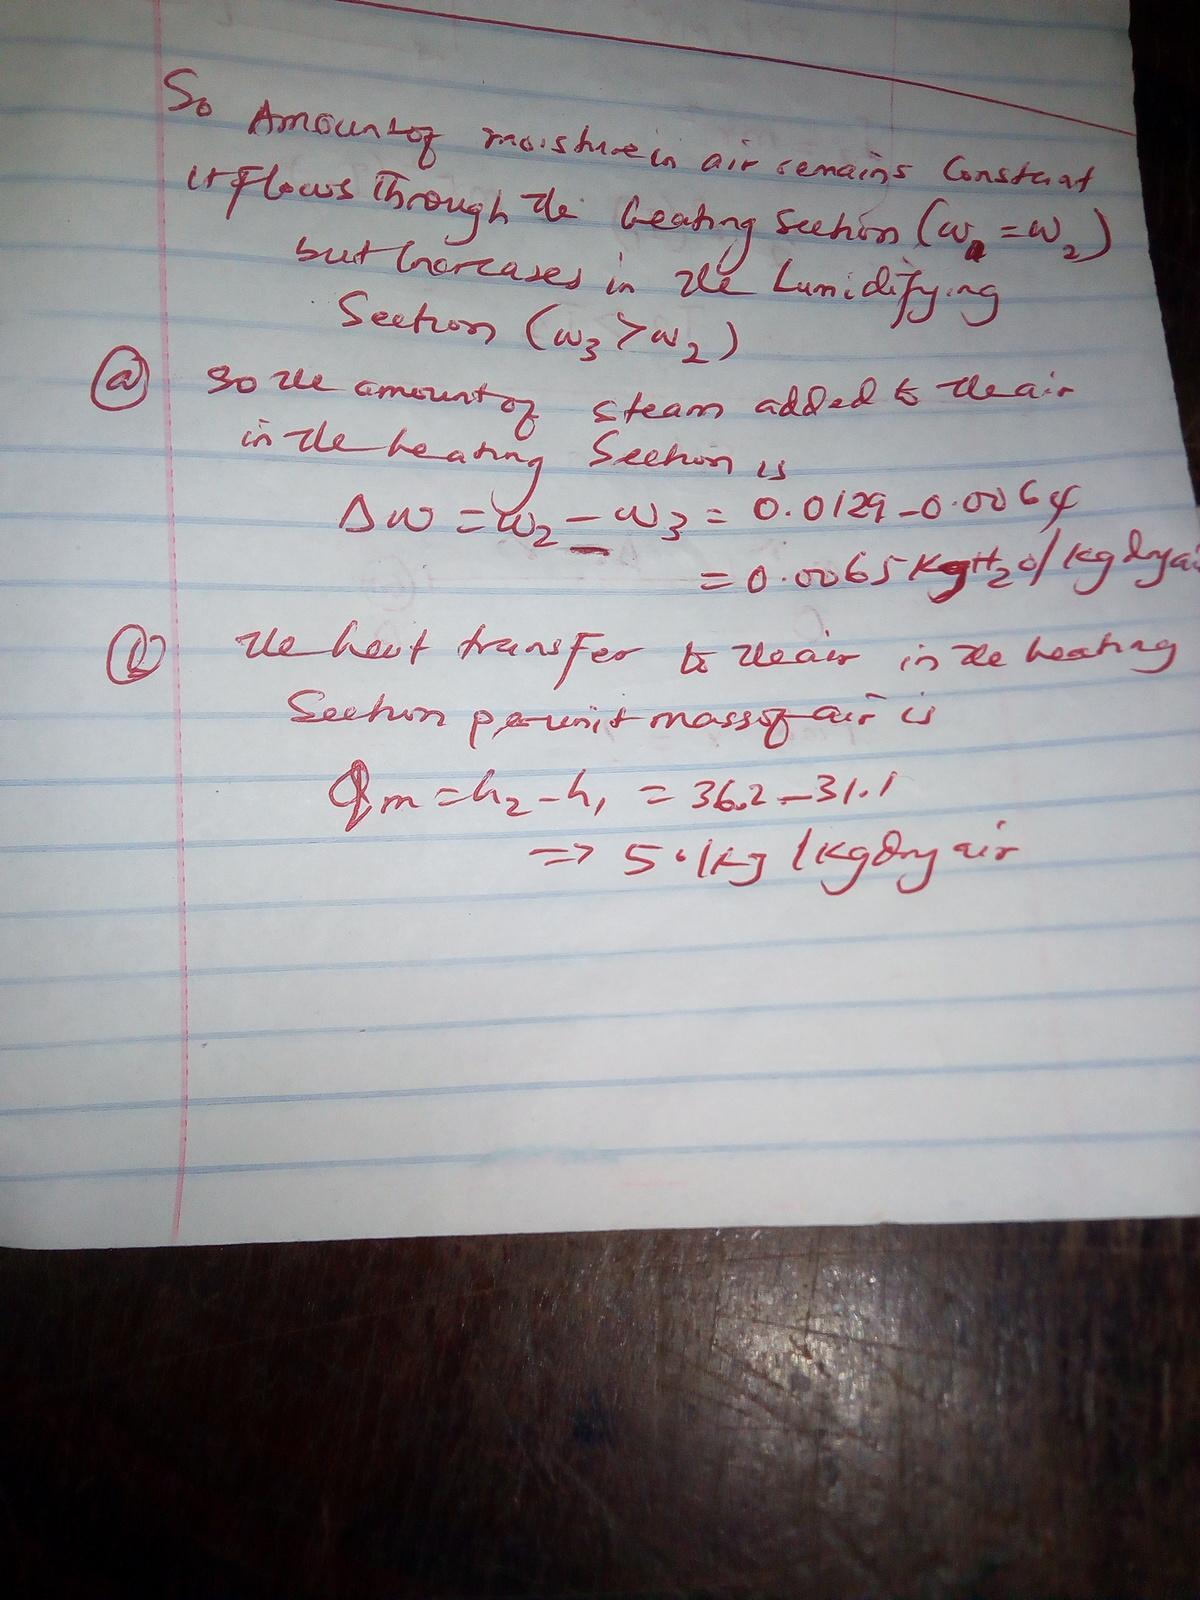 So Amount of moisture in air remains Constant
it flows Through the heating section (ω₁ = ω₂)
but Increases in the humidifying
Section (ω₃ > ω₂)
(a) so the amount of steam added to the air
in the heating Section is
Δω = ω₂ - ω₃ = 0.0129 - 0.0064
= 0.0065 KgH₂O/kg dry air
(b) the heat transfer to the air in the heating
Section per unit mass of air is
qm = h₂ - h₁ = 36.2 - 31.1
=> 5.1 kJ/kg dry air